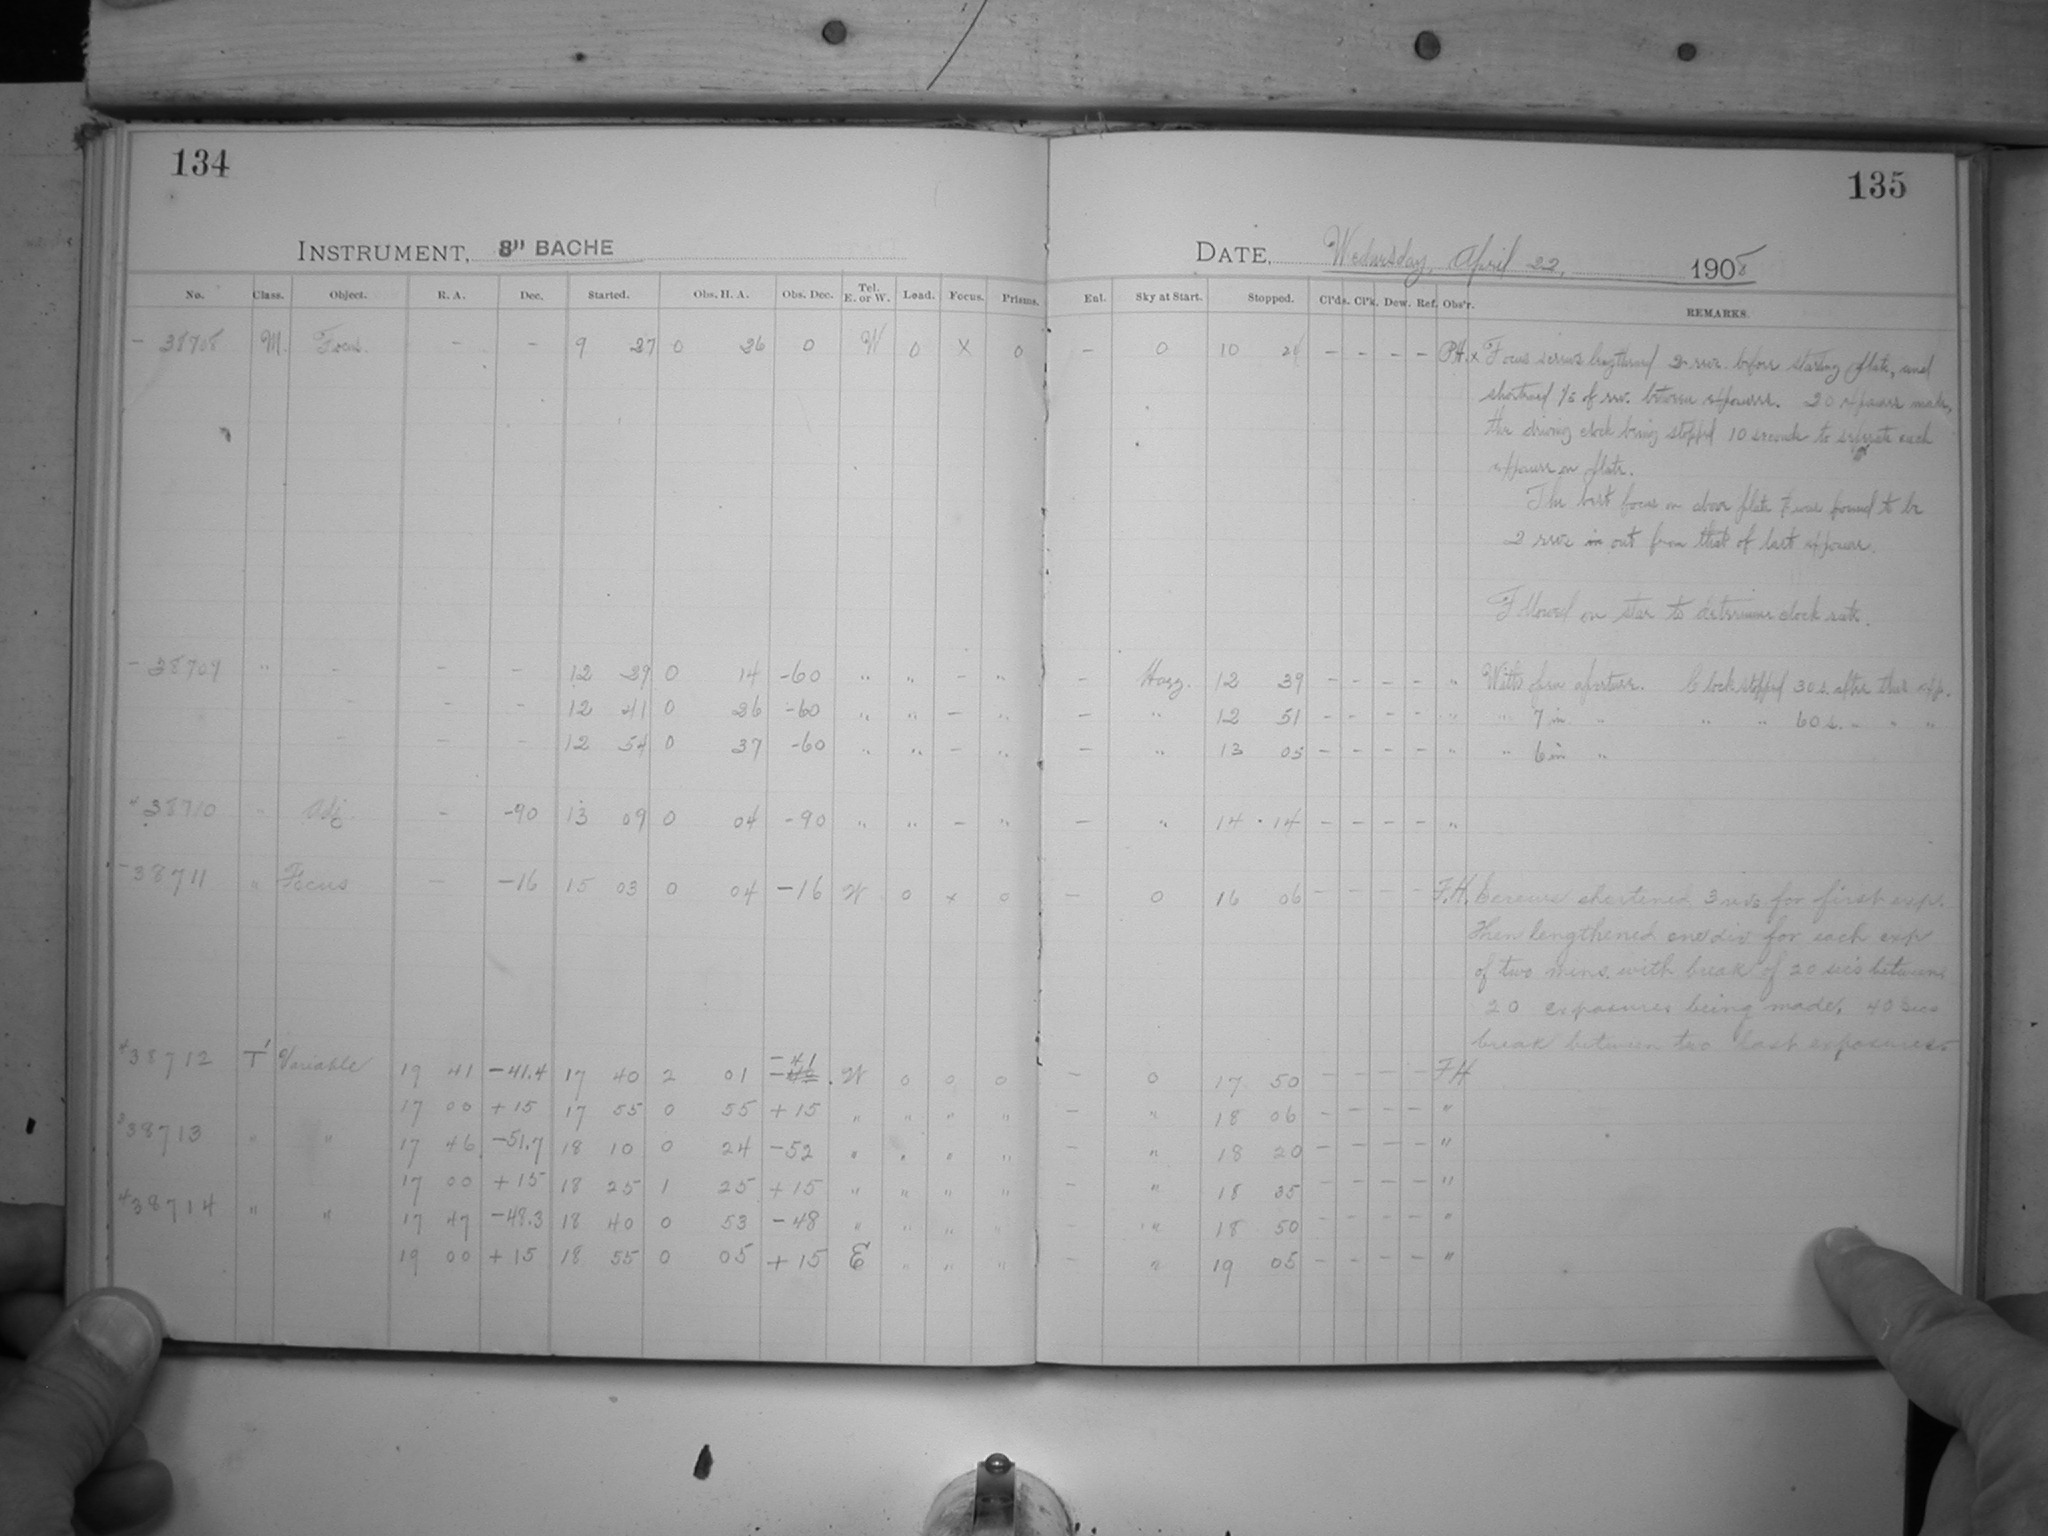 134
135
INSTRUMENT, 8" BACHE
DATE, Wednesday, April 22, 1908
No. Class. Object. R. A. Dec. Started. Obs. H. A. Obs. Dec. Tel. E. or W. Load. Focus. Prisms. Ent. Sky at Start. Stopped. Cl'ds. Cl'k. Dew. Ref. Obs'r. REMARKS.
- 38708 M. Focus. - - 9 27 0 26 0 W 0 X 0 - 0 10 - - - - x Focus screws lengthened 2 rev. before starting plate, and
shortened of rev. between exposures. 20 exposures made,
the driving clock being stopped 10 seconds to separate each
exposure on plate.
The best focus on above plate was found to be
2 revs out from that of last exposure.
Followed on star to determine clock rate.
- 38709 " - - - 12 29 0 14 -60 " " - " - Hazy. 12 39 - - - - " With open aperture. Clock stopped 30 s. after this exp.
- - - 12 41 0 26 -60 " " - " - " 12 51 - - - - " " 7 in " " " 60 s. " " "
- - - 12 54 0 37 -60 " " - " - " 13 05 - - - - " " 6 in "
4 38710 " Adj. - -90 13 09 0 04 -90 " " - " - " 14 14 - - - - "
- 38711 " Focus - -16 15 03 0 04 -16 W 0 x 0 - 0 16 06 - - - - F.H. Screws shortened 3 revs for first exp.
Then lengthened one div for each exp
of two mins. with break of 20 secs between
20 exposures being made, 40 secs
break between two last exposures-
4 38712 T' Variable 19 41 -41.4 17 40 2 01 -41 W 0 0 0 - 0 17 50 - - - - FH
17 00 +15 17 55 0 55 +15 " " " " - " 18 06 - - - - "
3 38713 " " 17 46 -51.7 18 10 0 24 -52 " " " " - " 18 20 - - - - "
17 00 +15 18 25 1 25 +15 " " " " - " 18 35 - - - - "
4 38714 " " 17 47 -48.3 18 40 0 53 -48 " " " " - " 18 50 - - - - "
19 00 +15 18 55 0 05 +15 E " " " - " 19 05 - - - - "